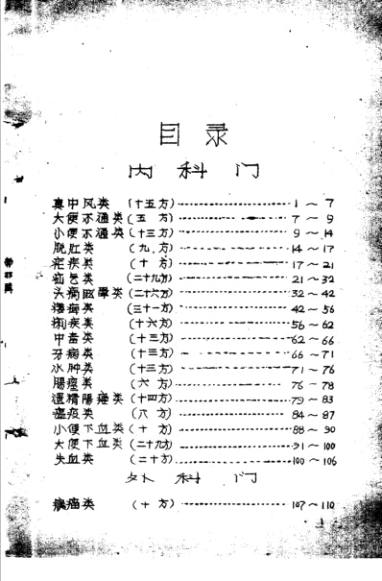 目录
内科门
真中风类 (十五方) 1~7
大便不通类 (五方) 7~9
小便不通类 (十三方) 9~14
脱肛类 (九方) 14~17
疟疾类 (十方) 17~21
疝气类 (二十九方) 21~32
(二十六方) 32~42
(三十一方) 42~56
痢疾类 (十六方) 56~62
中毒类 (十三方) 62~66
牙病类 (十三方) 66~71
水肿类 (十三方) 71~76
类 (六方) 76~78
遗精 类 (十四方) 79~83
瘟疫类 (八方) 84~87
小便下血类 (十方) 88~90
大便下血类 (二十九方) 91~100
失血类 (二十方) 100~106
外科门
类 (十方) 107~110